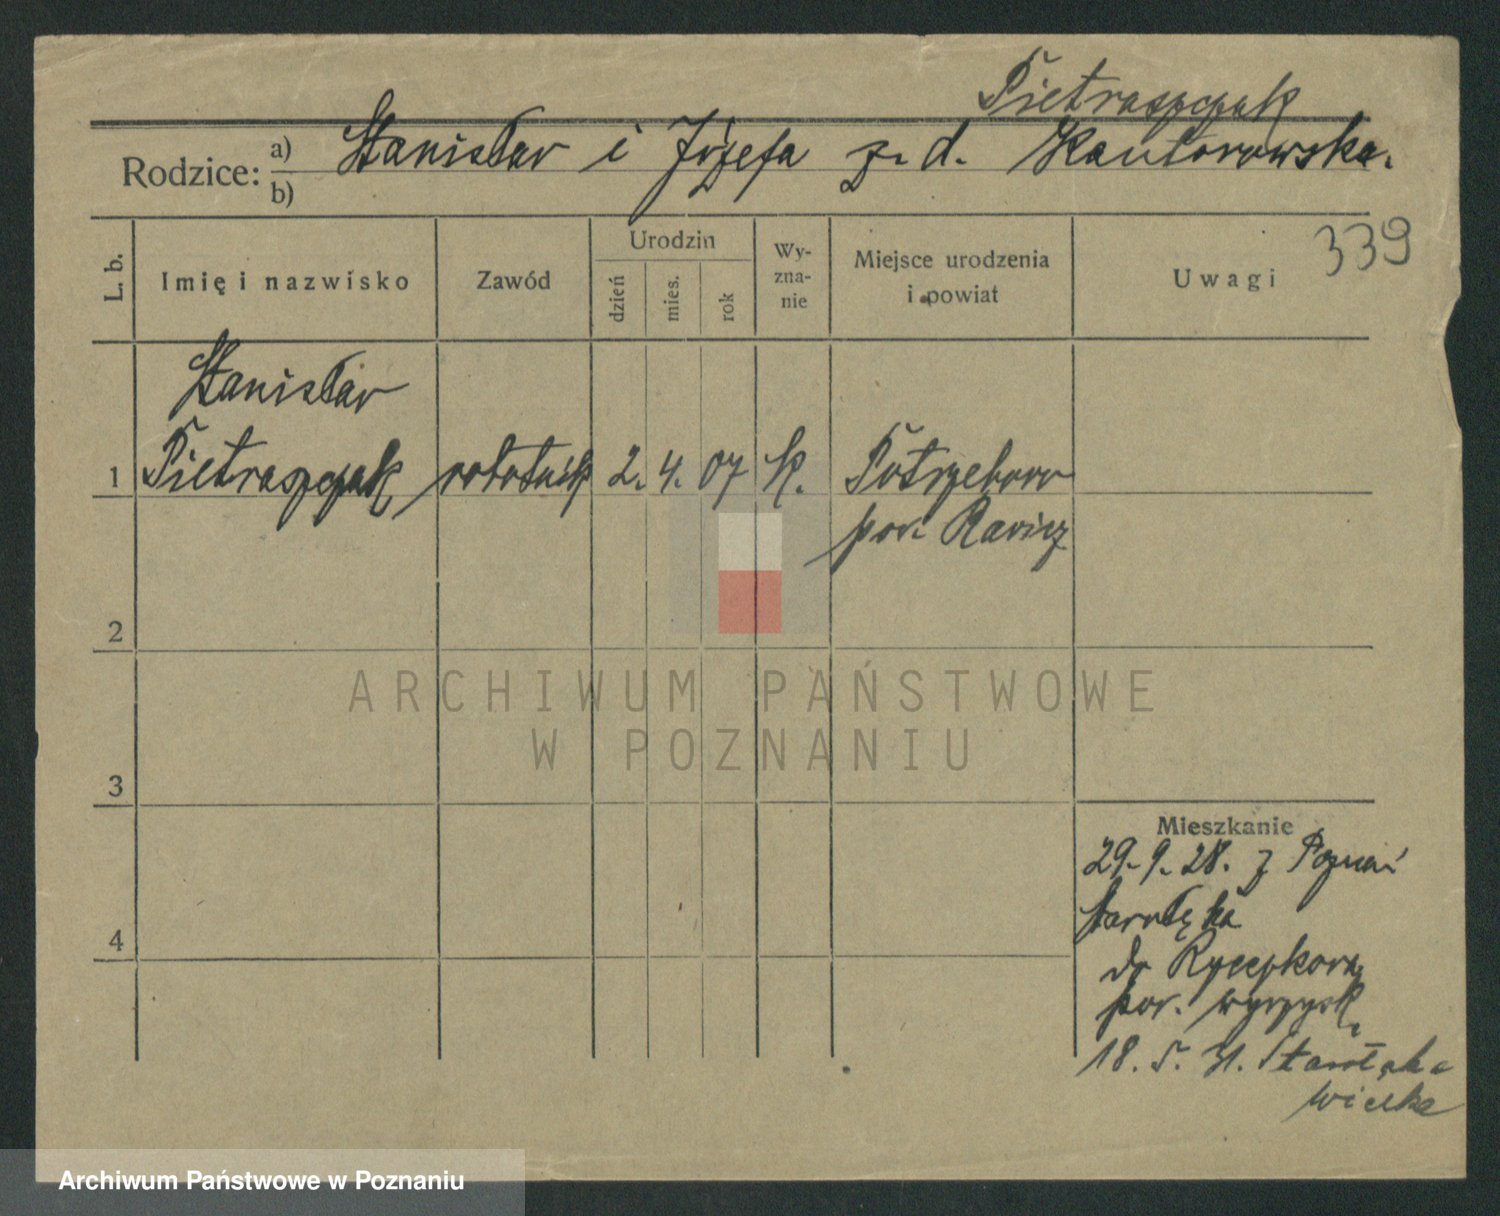 Pietraszczak
Rodzice: a) b) Stanisław i Józefa z. d. Kantorowska.
339
L. b.
Imię i nazwisko
Zawód
Urodzin
dzień
mies.
rok
Wy-
zna-
nie
Miejsce urodzenia
i powiat
Uwagi
Stanisław
1 Pietraszczak robotnik 2. 4. 07 K. Potrzebowo
pow. Rawicz
2
3
4
Mieszkanie
29. 9. 28. z Poznań
Starołęka
do
pow. Wyrzysk
18. 5. 31. Starołęka
Wielka
ARCHIWUM PAŃSTWOWE
W POZNANIU
Archiwum Państwowe w Poznaniu